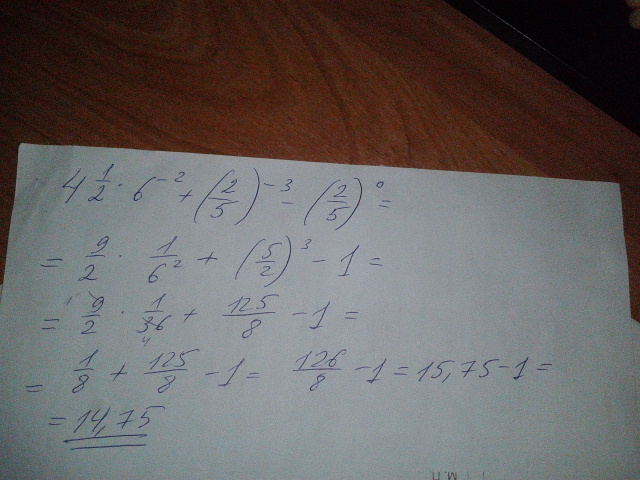 4 1/2 · 6⁻² + (2/5)⁻³ - (2/5)⁰ =
= 9/2 · 1/6² + (5/2)³ - 1 =
= 9/2 · 1/36 + 125/8 - 1 =
= 1/8 + 125/8 - 1 = 126/8 - 1 = 15,75 - 1 =
= 14,75